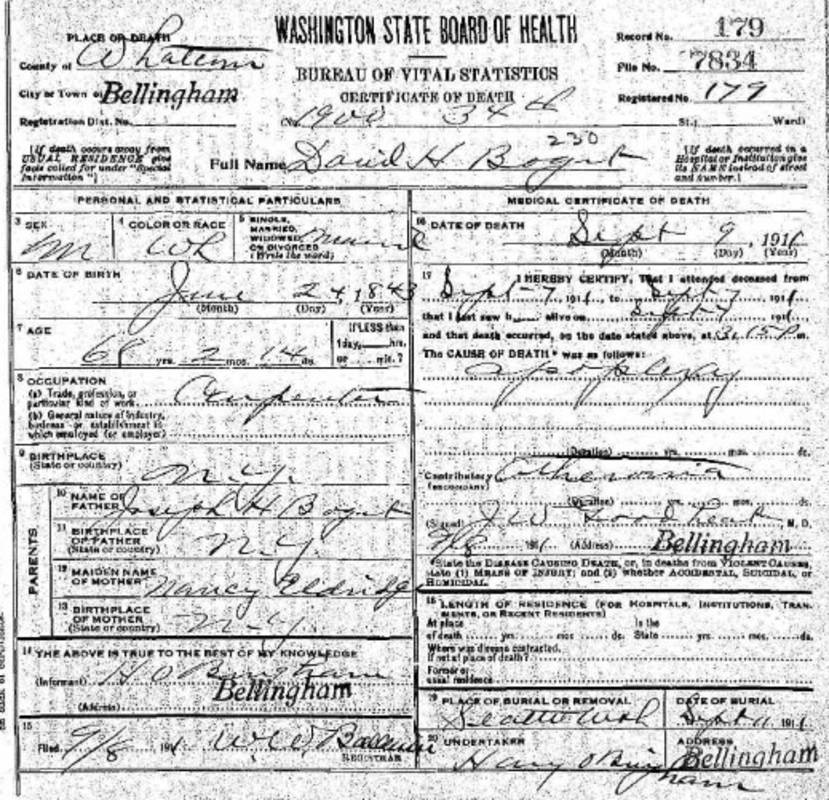 WASHINGTON STATE BOARD OF HEALTH
BUREAU OF VITAL STATISTICS
CERTIFICATE OF DEATH
PLACE OF DEATH
County of Whatcom
City or Town of Bellingham
Registration Dist. No.
Record No. 179
File No. 7834
Registered No. 179
(No. 1900 34th St.; Ward)
230
[If death occurs away from
USUAL RESIDENCE give
facts called for under "Special
Information"]
Full Name David H Bogut
[If death occurred in a
Hospital or Institution give
its NAME instead of street
and number.]
PERSONAL AND STATISTICAL PARTICULARS
3 SEX
M
4 COLOR OR RACE
Wh
5 SINGLE,
MARRIED,
WIDOWED,
OR DIVORCED
(Write the word)
6 DATE OF BIRTH
June 24, 1843
(Month) (Day) (Year)
7 AGE
68 yrs. 2 mos. 14 ds.
If LESS than
1 day, hrs.
or min.?
8 OCCUPATION
(a) Trade, profession, or
particular kind of work
Carpenter
(b) General nature of industry,
business or establishment in
which employed (or employer)
9 BIRTHPLACE
(State or country)
N.Y.
PARENTS
10 NAME OF
FATHER
Joseph H Bogut
11 BIRTHPLACE
OF FATHER
(State or country)
N.Y.
12 MAIDEN NAME
OF MOTHER
Nancy Eldridge
13 BIRTHPLACE
OF MOTHER
(State or country)
N.Y.
14 THE ABOVE IS TRUE TO THE BEST OF MY KNOWLEDGE
(Informant) H O Bingham
(Address) Bellingham
15
Filed 9/8 1911
REGISTRAR
MEDICAL CERTIFICATE OF DEATH
16 DATE OF DEATH
Sept 9, 1911
(Month) (Day) (Year)
17 I HEREBY CERTIFY, That I attended deceased from
Sept 7 1911, to Sept 7 1911
that I last saw h alive on Sept 7 1911
and that death occurred, on the date stated above, at 3.15 P m.
The CAUSE OF DEATH* was as follows:
apoplexy
(Duration) yrs. mos. ds.
Contributory
(SECONDARY)
(Duration) yrs. mos. ds.
(Signed) J W M. D.
9/8 1911 (Address) Bellingham
*State the DISEASE CAUSING DEATH, or, in deaths from VIOLENT CAUSES,
state (1) MEANS OF INJURY; and (2) whether ACCIDENTAL, SUICIDAL, or
HOMICIDAL.
18 LENGTH OF RESIDENCE (FOR HOSPITALS, INSTITUTIONS, TRAN-
SIENTS, OR RECENT RESIDENTS)
At place In the
of death yrs. mos. ds. State yrs. mos. ds.
Where was disease contracted,
If not at place of death?
Former or
usual residence
19 PLACE OF BURIAL OR REMOVAL
Seattle Wash
DATE OF BURIAL
Sept 11 1911
20 UNDERTAKER
Harry O Bingham
ADDRESS
Bellingham